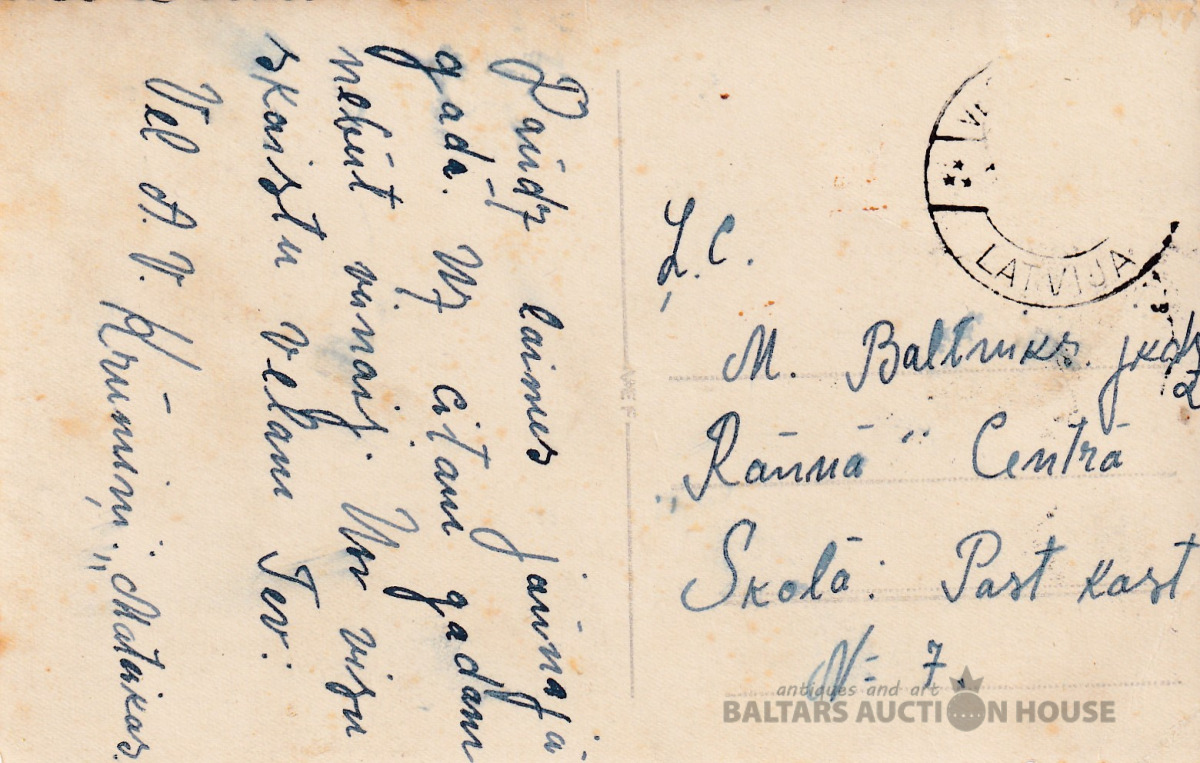 Daudz laimes jaunajā
gadā. Uz citam gadam
nebūt vienaj Un visu
skaistu Vēlam Tev:
Vēl A. V. Krūmiņi. „Matukas
Ļ. C.
M. Baltruks. jkdz
„Rannā" Centrā
Skolā: Past kast
№ 7.
LATVIJA
antiques and art
BALTARS AUCTION HOUSE